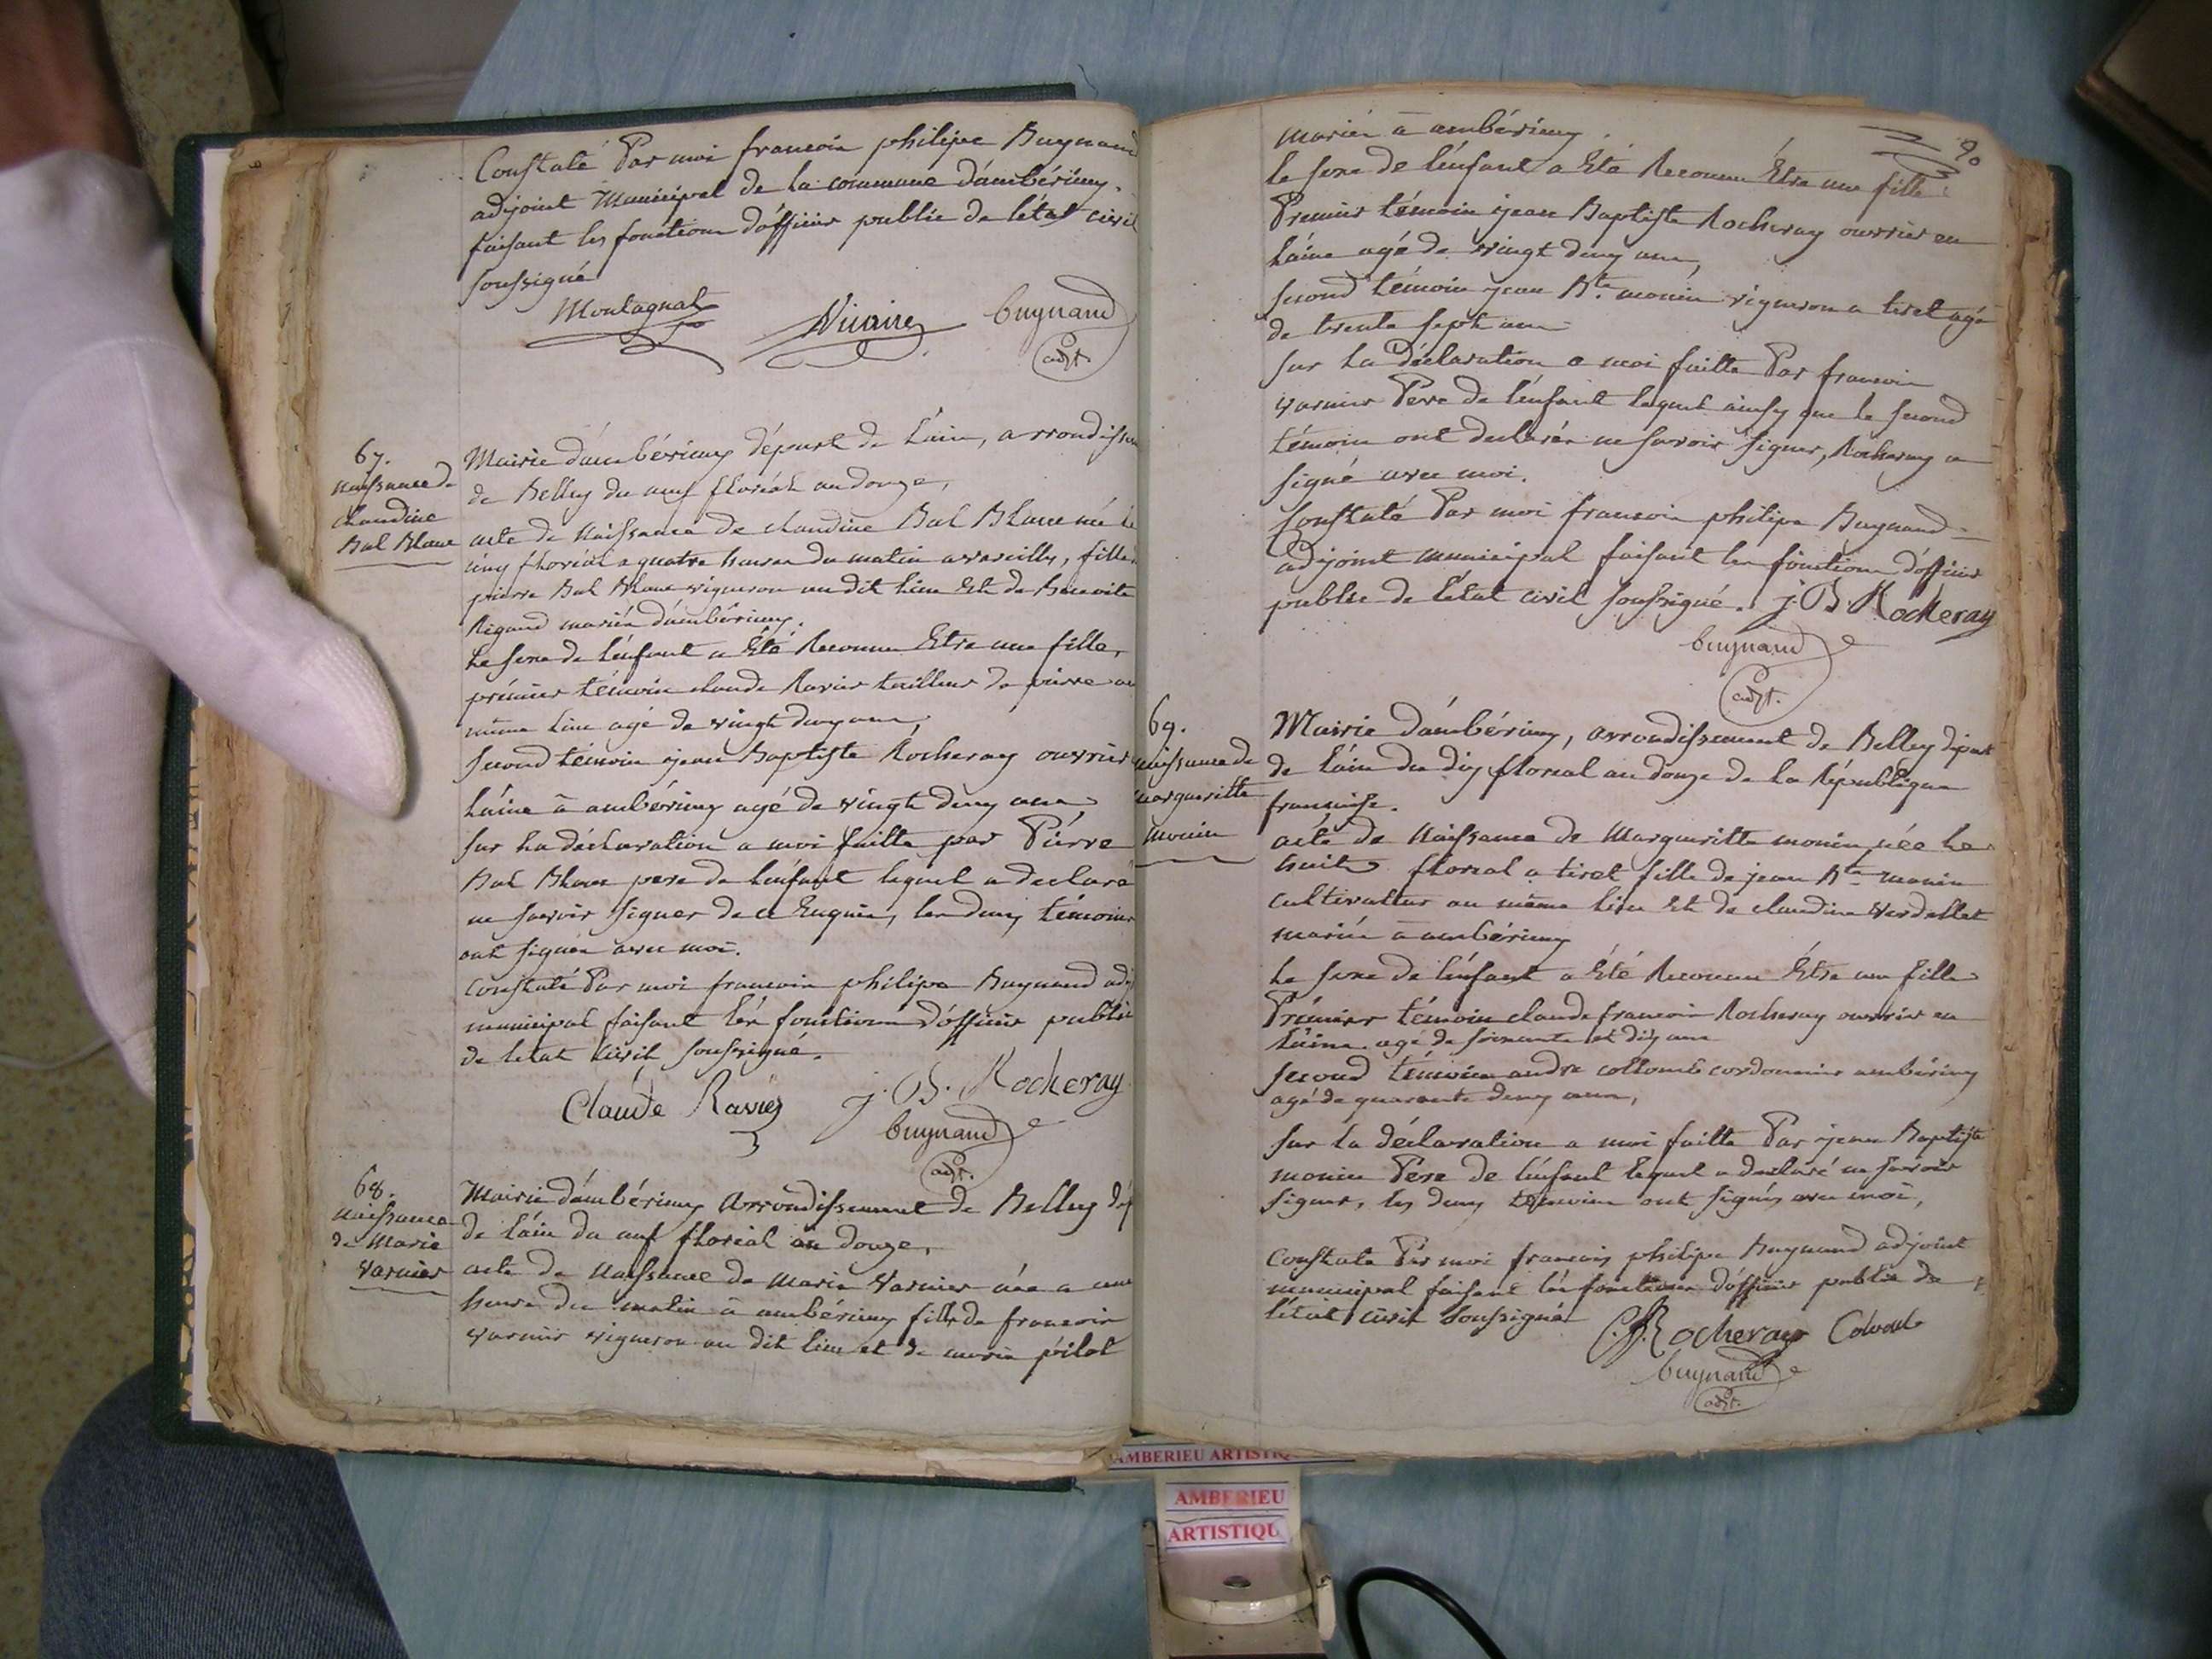 Constaté Par moi francoin philipe Buynand
adjoint Municipal de la commune d'ambérieuy.
faisant les fonctions d'officier public de l'état civil
soussigné
Montagnat Vicaire buynand
adjt.
67.
naissance de
claudine
Bal Blanc
Mairie d'ambérieuy départ de l'ain, arrondissem
de Belley du neuf floréal an douze,
acte de naissance de claudine Bal Blanc née le
cinq floréal a quatre heures du matin a vareilles, fille
pierre Bal Blanc vigneron au dit lieu Et de Benoite
Rigaud mariés d'ambérieuy.
Le sexe de l'enfant a Été Reconnu Etre une fille,
prémier témoin claude Ravier tailleur de pierre au
même lieu agé de vingt deux ans,
second témoin jean Baptiste Rocheray ouvrier
laine à ambérieuy agé de vingt deux ans
sur la déclaration a moi faitte par Pierre
Bal Blanc pere de l'enfant lequel a declaré
ne savoir signer de ce Enquis, les deux témoins
ont signés avec moi.
Constaté Par moi francoin philipe Buynand adj
municipal faisant les fonctions d'officier public
de l'etat civil soussigné.
Claude Ravier j. B. Rocheray
buynand
adjt.
68.
naissance
de Marie
Varnier
Mairie d'ambérieuy Arrondissement de Belley dép
de l'ain du neuf floréal an douze,
acte de Naissance de Marie Varnier née a une
heure du matin à ambérieuy fille de francoin
varnier vigneron au dit lieu et de marie pilot
90
mariés à ambérieuy.
le sexe de l'enfant a Eté Reconnu Être une fille
Premier témoin jean Baptiste Rocheray ouvrier en
laine agé de vingt deux ans,
second témoin jean Bte. monin vigneron a tiret agé
de trente sept ans
sur la Déclaration a moi faitte Par francoin
varnier Père de l'enfant lequel ainsy que le second
témoin ont declarés ne savoir signer, Rocheray a
signé avec moi.
Constaté Par moi francoin philipe Buynand
adjoint municipal faisant les fonctions d'officier
public de l'état civil soussigné. j. B. Rocheray
buynand
adjt.
69.
naissance de
margueritte
monin
Mairie d'ambérieuy, arrondissement de Belley depart
de l'ain du dix floréal an douze de la République
francaise.
acte de Naissance de Margueritte monin née le
huit floréal a tiret fille de jean Bte monin
cultivateur au même lieu Et de claudine Verdellet
mariés à ambérieuy
Le sexe de l'enfant a Eté Reconnu Être une fille
Prémier témoin claude francoin Rocheray ouvrier en
laine agé de soixante et dix ans
second témoin andre collomb cordonnier ambérieuy
agé de quarante deux ans,
sur la déclaration a moi faitte Par jean Baptiste
monin Père de l'enfant lequel a declaré ne savoir
signer, les deux témoins ont signés avec moi,
Constaté Par moi francois philipe Buynand adjoint
municipal faisant les fonctions d'officier public de
l'état civil soussigné
C. f. Rocheray Colomb
buynand
adjt.
AMBERIEU ARTISTIQ
AMBERIEU
ARTISTIQU